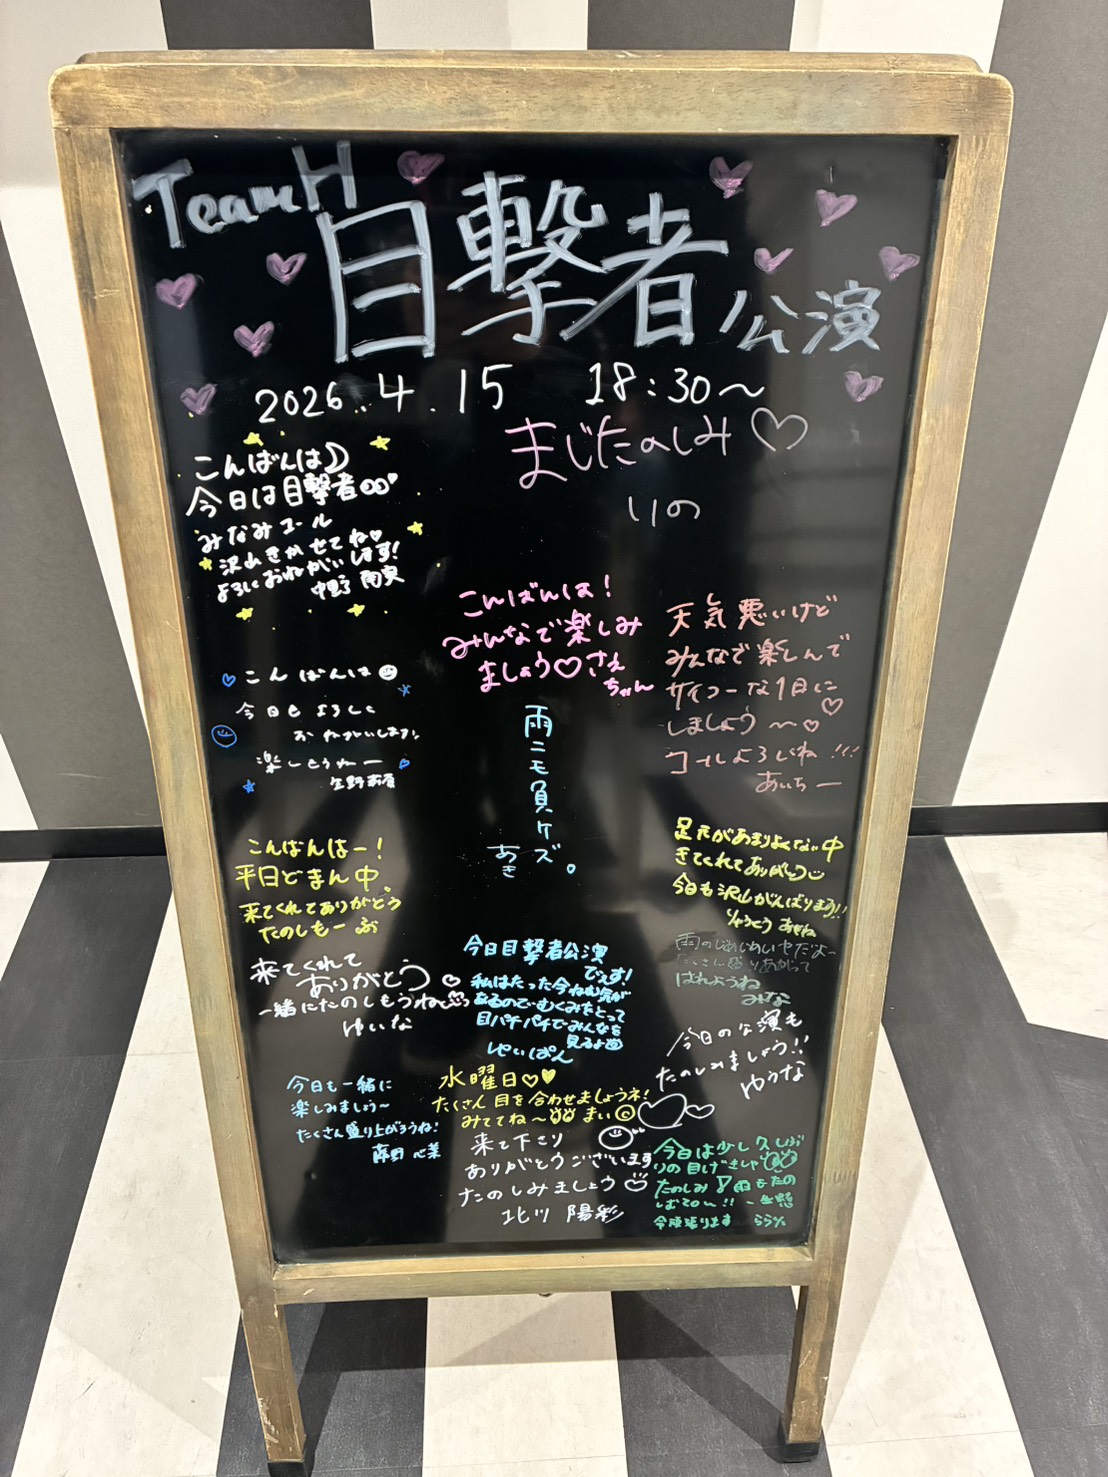 TeamH
目撃者公演
2026.4.15 18:30〜
まじたのしみ♡
りの
こんばんは
今日は目撃者
みなみコール
沢山きかせてね
よろしくおねがいします!
こんばんは!
みんなで楽しみ
ましょう♡さえ
ちゃん
天気悪いけど
みんなで楽しんで
サイコーな1日に
しましょう〜
コールよろしくね!!!
あいちー
こんばんは
今日もよろしく
おねがいします!
楽しもうねー
雨ニモ負ケズ。
あき
こんばんはー!
平日どまん中、
来てくれてありがとう
たのしもーぶ
足元があまりよくない中
きてくれてありがとう
今日も沢山がんばりまう!!
りゅうとう あかね
来てくれて
ありがとう♡
一緒にたのしもうね
ゆいな
今日目撃者公演
でぇす!
私はたった今ねむ気が
あるのでむくみをとって
目パチパチでみんなを
見るよ
せいぱん
雨のじめじめいやだよ〜
たくさん盛りあがって
はれようね
みな
今日の公演も
たのしみましょう!!
ゆうな
今日も一緒に
楽しみましょう〜
たくさん盛り上がろうね!
藤野 心葉
水曜日♡♥
たくさん目を合わせましょうネ!
みててね〜 まい
来て下さり
ありがとうございます
たのしみましょう
北川 陽彩
今日は少し久しぶ
りの目げきしゃ
たのしみ
令頑張ります ららか